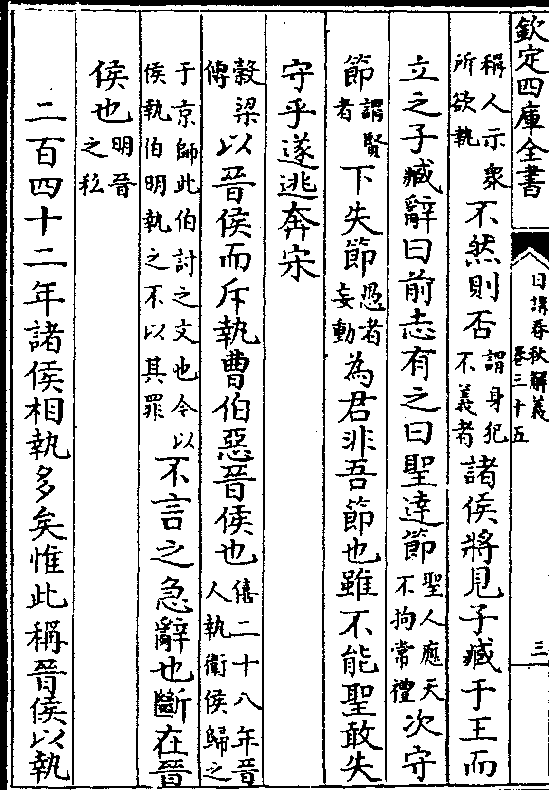 欽定四庫全書
日講春秋解義 卷三十五
三
稱人示衆所欲執不然則否謂身犯不義者諸侯將見子臧于王而
立之子臧辭曰前志有之曰聖達節聖人應天不拘常禮次守
節謂賢者下失節愚者妄動為君非吾節也雖不能聖敢失
守乎遂逃奔宋
穀梁傳以晉侯而斥執曹伯惡晉侯也僖二十八年晉人執衛侯歸之
于京師此伯討之文也今以侯執伯明執之不以其罪不言之急辭也斷在晉
侯也明晉之私
二百四十二年諸侯相執多矣惟此稱晉侯以執